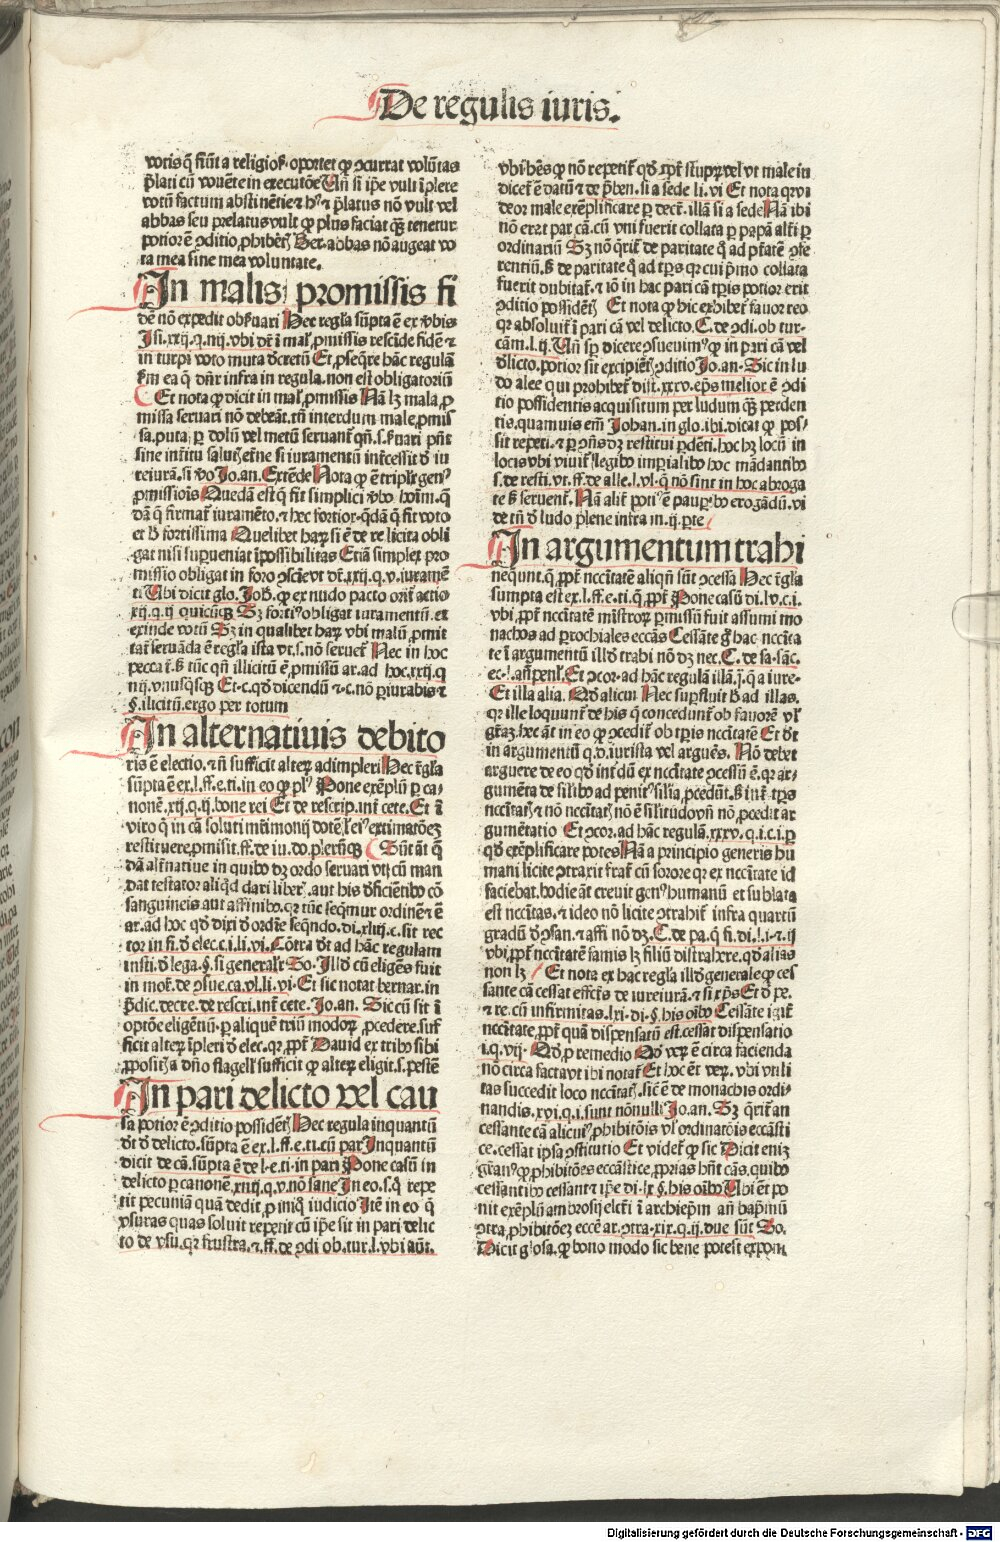 De regulis iuris.
votis q̄ fiūt a religios̄ oportet ꝙ ꝯcurrat volūtas
p̄lati cū vouēte in executōe Uñ si ip̄e vult īplere
votū factum absti nētie ⁊ h⁹ ⁊ p̄latus nō vult vel
abbas seu prelatus vult ꝙ plus faciat qꝫ tenetur
potior ē ꝯditio ꝓhibētꝭ Ver. abbas nō augeat vo
ta mea sine mea voluntate.
In malis promissis fi
dē nō expedit obs̄uari Hec regl̄a sūpta ē ex v̄bis
Isi. xxij. q. iiij. vbi dr̄ ī mal̄ ꝓmissis rescīde fidē ⁊
in turpi voto muta d̄cretū Et ꝓseq̄re hāc regulā
s̄m ea q̄ dn̄r infra in regula. non est obligatoriū
Et nota ꝙ dicit in mal̄ ꝓmissis Nā lꝫ mala ꝓ
missa seruari nō debeāt. tn̄ interdum male ꝓmis
sa. puta ꝑ dolū vel metū seruant̄ qn̄. s̄. s̄uari pn̄t
sine int̄itu salut̄ et̄ne si iuramentū int̄cessit d̄ iu
reiurā. si v̄o Jo. an. Extēde Nota ꝙ ē triplex gen⁹
ꝓmissiois Quedā est q̄ fit simplici v̄bo hoīm. q̄
dā q̄ firmat̄ iuramēto. ⁊ hec fortior. q̄dā q̄ fit voto
et h̄ fortissima Quelibet haꝝ si ē de re licita obli
gat nisi supueniat īpossibilitas Etiā simplex pro
missio obligat in foro ꝯsciēe vt dr̄. xxij. q. v. iuramē
ti Ubi dicit glo. Joh̄. ꝙ ex nudo pacto orit̄ actio
xij. q. ij quicūqꝫ Sꝫ forti⁹ obligat iuramentū. et
exinde votū Sꝫ in qualibet haꝝ vbi malū ꝓmit
tat̄ seruāda ē regl̄a ista vt. s. nō seruet̄ Nec in hoc
peccat̄. s̄ tūc qn̄ illicitū ē ꝓmissū ar. ad hoc. xxij. q
iiij. vnusqsqꝫ Et. c. qd̄ dicendū ⁊. c. nō ꝑiurabis ⁊
§. ilicitū. ergo per totum
In alternatiuis debito
ris ē electio. ⁊ n̄ sufficit alteꝝ adimpleri Hec r̄gl̄a
sūpta ē ex. l. ff. e. ti. in eo ꝙ pl⁹ Pone exēplū ꝑ ca-
nonē. xij. q. ij. bone rei Et de rescrip. int̄ cete. Et ī
viro q̄ in cā soluti mr̄imonij dotē l̄ ei⁹ extimatōeꝫ
restituere ꝓmisit. ff. de iu. do. plerūqꝫ Sūt āt q̄
dā alt̄natiue in quibꝰ dꝫ ordo seruari vtꝫ cū man
dat testator aliqd̄ dari liber̄. aut his d̄ficiētibꝰ cō
sanguineis aut affinibꝰ. qr tūc seqm̄ur ordinē ⁊ ē
ar. ad hoc qd̄ dixi d̄ ordīe seqn̄do. di. xliij. c. sit rec
tor in fi. d̄ elec. c. i. li. vi. Cōtra dr̄ ad hāc regulam
insti. d̄ lega. §. si generalr̄ So. Illd̄ cū eligēs fuit
in mot̄. de ꝯsue. ca. vl. li. vi. Et sic notat bernar. in
p̄dic. decre. de rescri. int̄ cete. Jo. an. Sic cū sit ī
optōe eligētiū. ꝑ aliquē triū modoꝝ ꝓcedere. suf
ficit alteꝝ īpleri d̄ elec. qr ꝓpt̄ Dauid ex tribꝰ sibi
ꝓpositꝭ a dn̄o flagell̄ sufficit ꝙ alteꝝ eligit. s. pestē
In pari delicto vel cau
sa potior ē ꝯditio possidētꝭ Hec regula inquantū
dr̄ d̄ delicto. sūpta ē ex. l. ff. e. ti. cū par Inquantū
dicit de cā. sūpta ē de l. e. ti. in pari Pone casū in
delicto ꝑ canonē. xiiij. q. v. nō sane In eo. s. q̄ repe
tit pecuniā quā dedit ꝓ iniq̄ iudicio Itē in eo q̄
vsuras quas soluit repetit cū ip̄e sit in pari delic
to de vsu. qr frustra. ⁊. ff. de ꝯdi ob. tur. l. vbi aūt.
vbi hēs ꝙ nō repetit̄ qd̄ ꝓpt̄ stupꝝ vel vt male iu
dicet̄ ē datū ⁊ de p̄ben. si a sede li. vi Et nota qr vi
deor male exēplificare ꝑ decr̄. illā si a sede Nā ibi
nō erat par cā. cū vni fuerit collata ꝑ papā alt̄i ꝑ
ordinariū Sꝫ nō q̄rit̄ de paritate q̄ ad ptātē ꝯfe
rentiū. s̄ de paritate q̄ ad tꝑs qr cui p̄mo collata
fuerit dubitat̄. ⁊ iō in hac pari cā tꝑis potior erit
ꝯditio possidētꝭ Et nota ꝙ hic exhibet̄ fauor reo
qr absoluit̄ ī pari cā vel delicto. C. de ꝯdi. ob tur-
cām. l. ij. Uñ sꝑ dicere ꝯsueuim⁹ ꝙ in pari cā vel
d̄licto. potior sit excipiētꝭ ꝯditio Jo. an. Sic in lu
do alee qui prohibet̄ dist. xxxv. ep̄s melior ē ꝯdi
tio possidentis acquisitum per ludum qꝫ perden
tis. quamuis em̄ Johan. in glo. ibi. dicat ꝙ pos-
sit repeti. ⁊ ꝑ ꝯn̄s dꝫ restitui ꝑdēti. hoc hꝫ locū in
locis vbi viuit̄ legibꝰ imꝑialibꝰ hoc mādantibꝰ
s. de resti. vt. ff. de alle. l. vl. q̄ nō sint in hoc abroga
te s̄ seruent̄. Nā alit̄ poti⁹ ē pauꝑibꝰ erogādū. vi
de tn̄ d̄ ludo plene infra in. ij. ꝑte
In argumentum trahi
neqūnt. q̄ ꝓpt̄ nccītatē aliqn̄ sūt ꝯcessa Hec r̄gl̄a
sumpta est ex. l. ff. e. ti. q̄ ꝓpt̄ Pone casū di. lv. c. i.
vbi ꝓpt̄ nccītatē mīstroꝝ ꝑmissū fuit assumi mo
nachos ad ꝑrochiales eccās Cessāte g̃ hac nccīta
te ī argumētū illd̄ trahi nō dꝫ nec. C. de sa. sāc.
ec. l. ass̄. penl̄. Et ꝯcor. ad hāc regulā illā. j. q̄ a iure-
Et illa alia. Qd̄ alicui Nec suꝑfluit h̄ ad illas.
qr ille loquunt̄ de his q̄ concedunt̄ ob fauorē vl̄
gr̄az. hec āt in eo ꝙ ꝯcedit̄ ob tꝑis nccītatē Et dr̄
in argumētū q. d. iurista vel arguēs. Nō debet
arguere de eo qd̄ int̄dū ex nccītate ꝯcessū ē. qr ar-
gumēta de silibꝰ ad penit⁹ silia ꝓcedāt. s̄ int̄ tꝑs
nccītatꝭ ⁊ nō nccītatꝭ nō ē silitudo vñ nō ꝓcedit ar
gumētatio Et ꝯcor. ad hāc regulā. xxxv. q. i. c. i. ꝑ
qd̄ exēplificare potes Nā a principio generis hu
mani licite ꝯtraxit frat̄ cū sorore qr ex nccītate id
faciebat. hodie āt creuit gen⁹ humanū et sublata
est nccītas. ⁊ ideo nō licite ꝯtrahit̄ infra quartū
gradū d̄ ꝯsan. ⁊ affi nō dꝫ. C. de pa. q̄ fi. di. l. i. ⁊. ij
vbi ꝓpt̄ nccītatē famis lꝫ filiū distrahere. qd̄ alias
non lꝫ Et nota ex hac regl̄a illd̄ generale ꝙ ces
sante cā cessat effcts̄ de iureiurā. ⁊ si xp̄s Et d̄ pe.
⁊ re. cū infirmitas. lxi. di. §. his oībꝰ Cessāte igit̄
nccītate ꝓpt̄ quā dispensatū est. cessat dispensatio
i. q. vij. Qd̄ ꝓ remedio Qd̄ veꝝ ē circa facienda
nō circa facta vt ibi notat̄ Et hoc ēt veꝝ. vbi vtili
tas succedit loco nccītatꝭ. sic ē de monachis ordi-
nandis. xvi. q. i. sunt nōnulli Jo. an. Sꝫ qrit̄ an
cessante cā alicui⁹ ꝓhibitōis vl̄ ordinatōis eccāsti
ce. cessat ipsa ꝯstitutio Et videt̄ ꝙ sic Dicit eniꝫ
gr̄an⁹ ꝙ ꝓhibitōes eccāstice ꝓprias hn̄t cās. quibꝰ
cessantibꝰ cessant ⁊ ip̄e di. lx §. his oībꝰ Ubi ēt po
nit exēplū ambrosij elct̄i ī archiep̄m an̄ bap̄mū
ꝯtra ꝓhibitōeꝫ eccē ar. ꝯtra. xix. q. ij. due sūt So.
Dicit glosa. ꝙ bono modo sic bene potest exponi
Digitalisierung gefördert durch die Deutsche Forschungsgemeinschaft - DFG